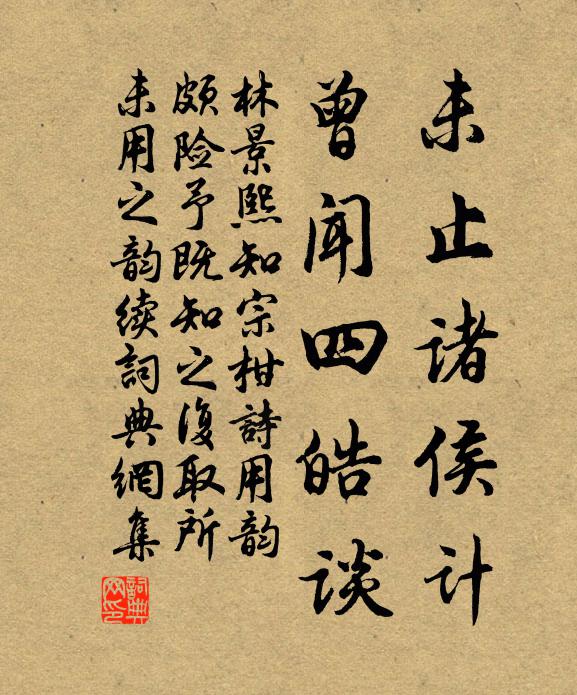 未止诸侯计
曾闻四皓談
林景熙知宗柑詩用韵
颇险予既知之復取所
未用之韵续詞典網集
詞典网印